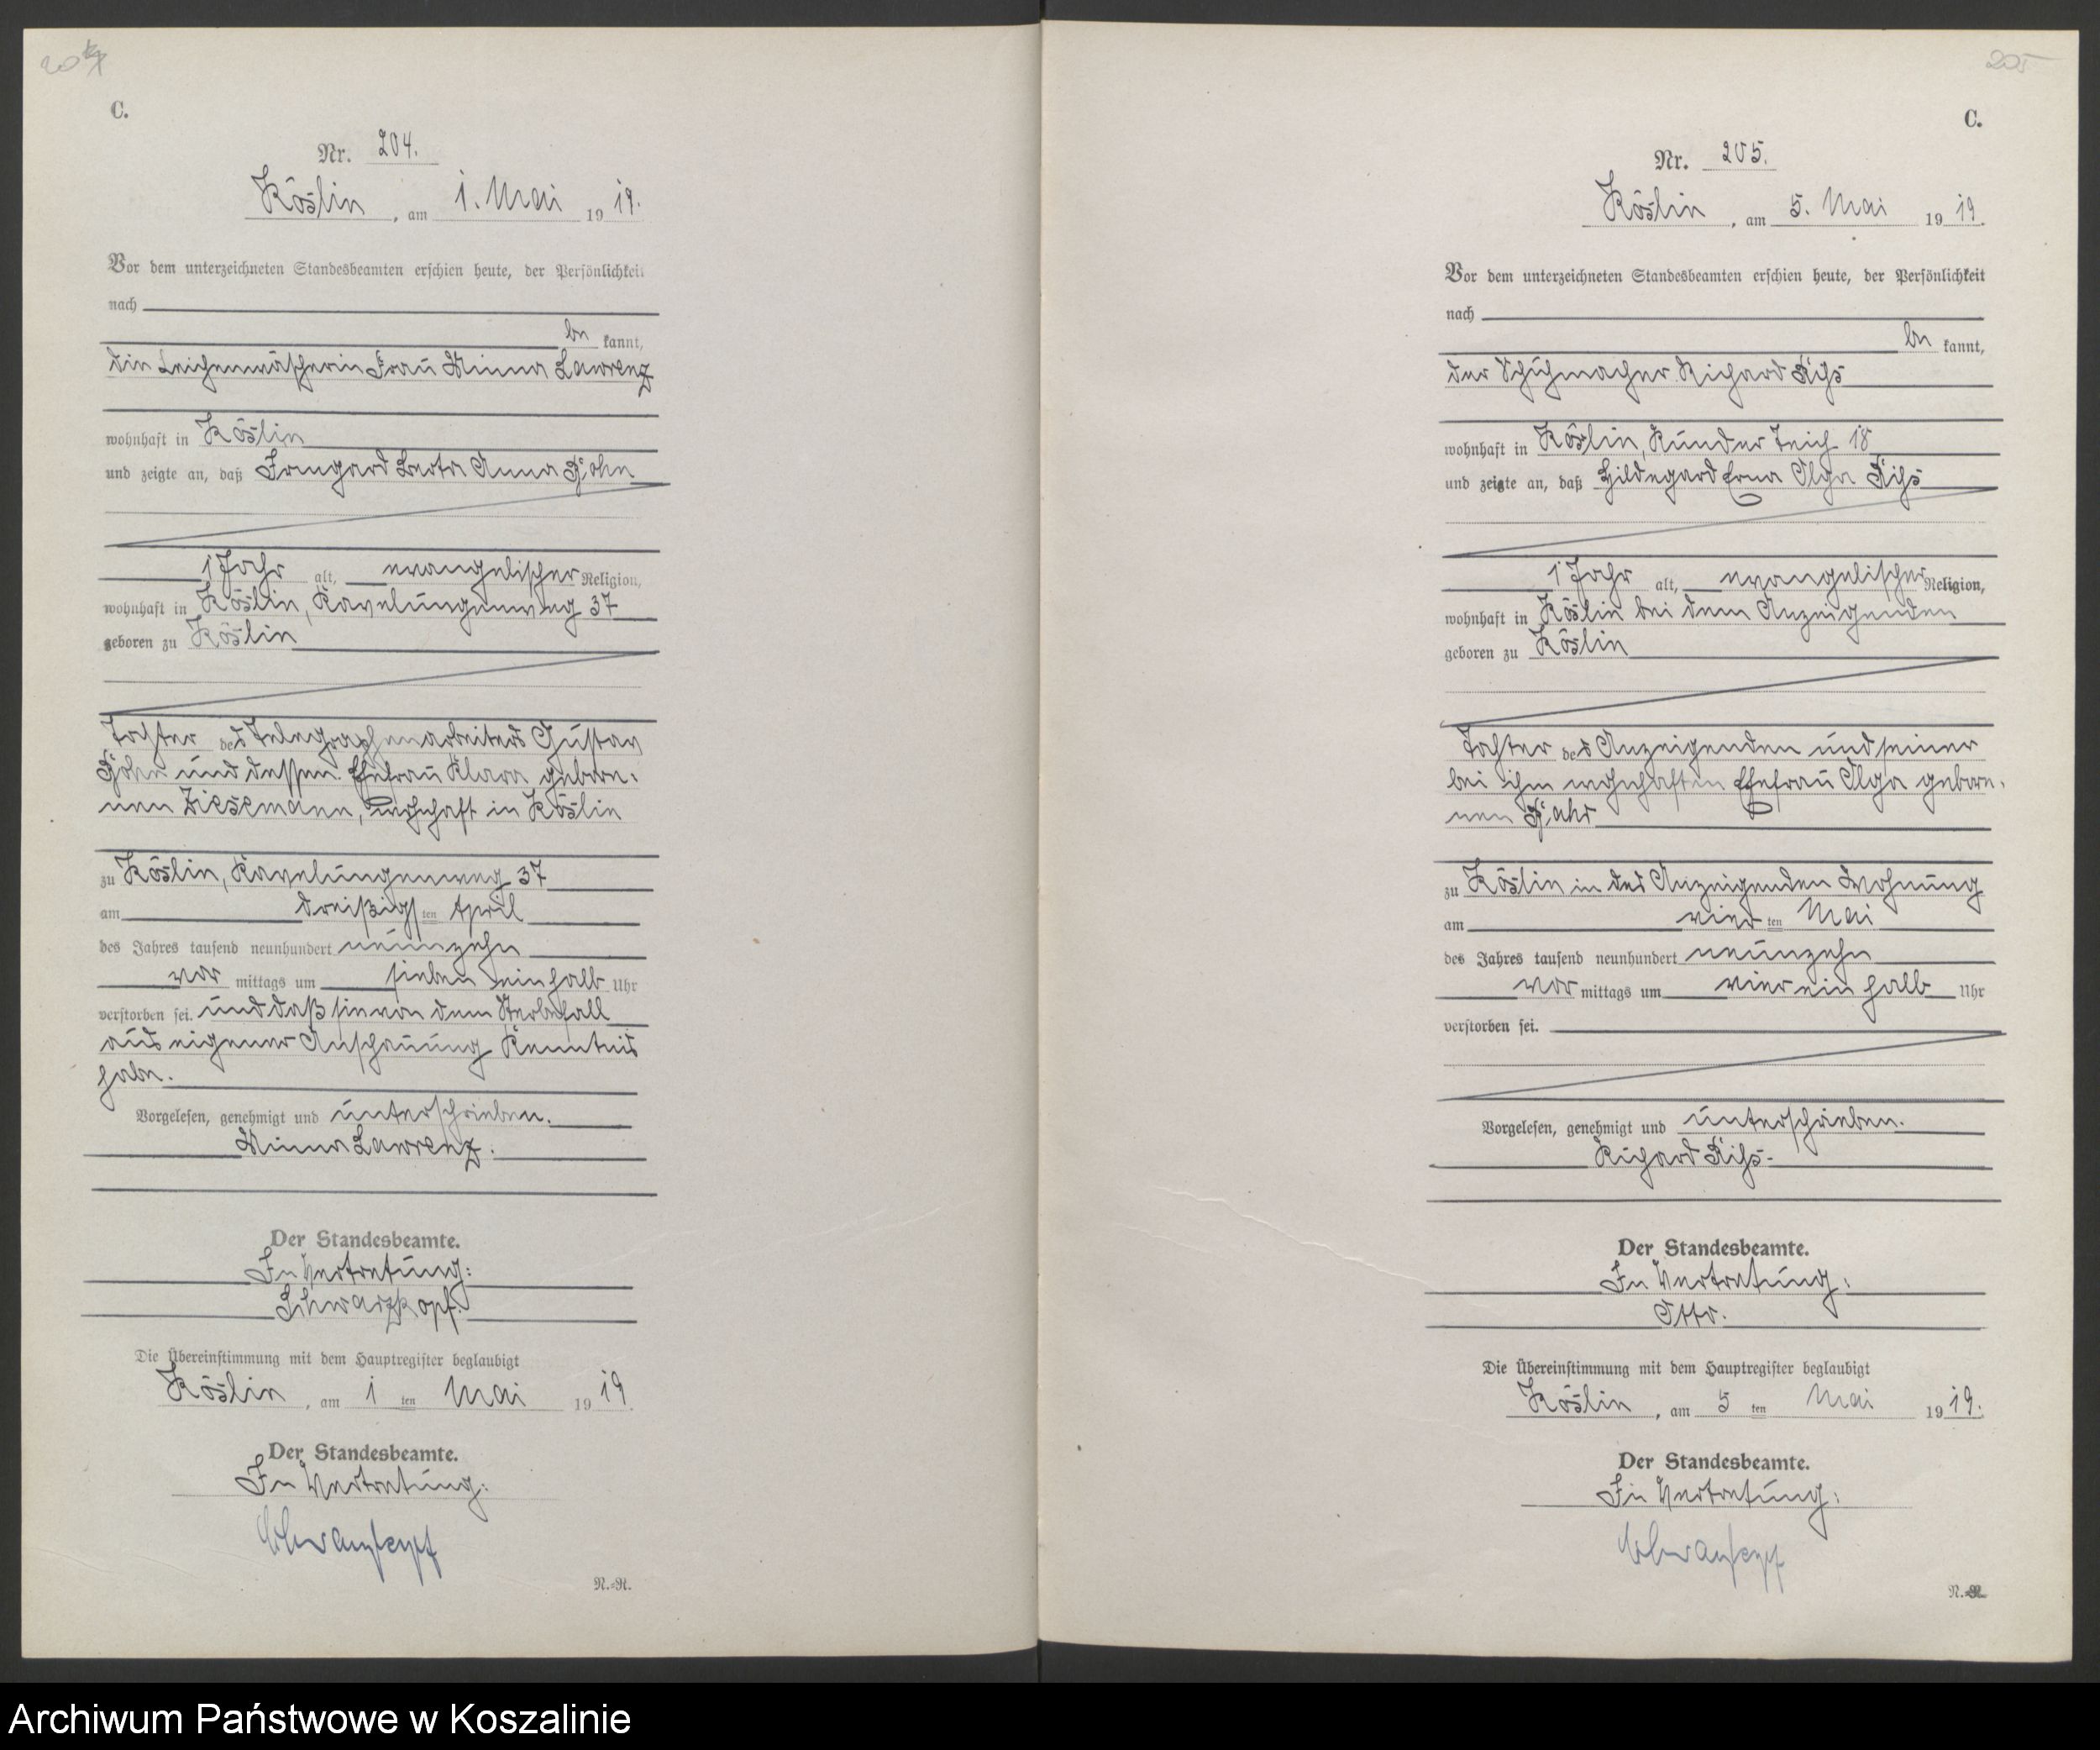 204
C.
Nr. 204.
Köslin, am 1. Mai 1919.
Vor dem unterzeichneten Standesbeamten erschien heute, der Persönlichkeit
nach
be kannt,
die Leichenwäscherin Frau Minna Lawrenz
wohnhaft in Köslin
und zeigte an, daß Irmgard Berta Anna
1 Jahr alt, evangelischer Religion,
wohnhaft in Köslin, Kavelungenweg 37
geboren zu Köslin
Tochter des Telegraphenarbeiters Gustav
und dessen Ehefrau Klara gebore-
nen Ziesemann, wohnhaft in Köslin
zu Köslin, Kavelungenweg 37
am dreißigsten April
des Jahres tausend neunhundert neunzehn
vor mittags um sieben einhalb Uhr
verstorben sei. und daß sie von dem Sterbefall
aus eigener Anschauung Kenntnis
habe.
Vorgelesen, genehmigt und unterschrieben.
Minna Lawrenz.
Der Standesbeamte.
In Vertretung:
Schwarzkopf.
Die Übereinstimmung mit dem Hauptregister beglaubigt
Köslin, am 1 ten Mai 1919.
Der Standesbeamte.
In Vertretung:
Schwarzkopf
N.-R.
205
C.
Nr. 205.
Köslin, am 5. Mai 1919.
Vor dem unterzeichneten Standesbeamten erschien heute, der Persönlichkeit
nach
be kannt,
der Schuhmacher Richard
wohnhaft in Köslin, Runder Teich 18
und zeigte an, daß Hildegard Erna Olga
1 Jahr alt, evangelischer Religion,
wohnhaft in Köslin bei dem Anzeigenden
geboren zu Köslin
Tochter des Anzeigenden und seiner
bei ihm wohnhaften Ehefrau Olga gebore-
nen
zu Köslin in des Anzeigenden Wohnung
am vierten Mai
des Jahres tausend neunhundert neunzehn
vor mittags um vier ein halb Uhr
verstorben sei.
Vorgelesen, genehmigt und unterschrieben.
Richard
Der Standesbeamte.
In Vertretung:
Otto.
Die Übereinstimmung mit dem Hauptregister beglaubigt
Köslin, am 5 ten Mai 1919.
Der Standesbeamte.
In Vertretung:
Schwarzkopf
N.-R.
Archiwum Państwowe w Koszalinie